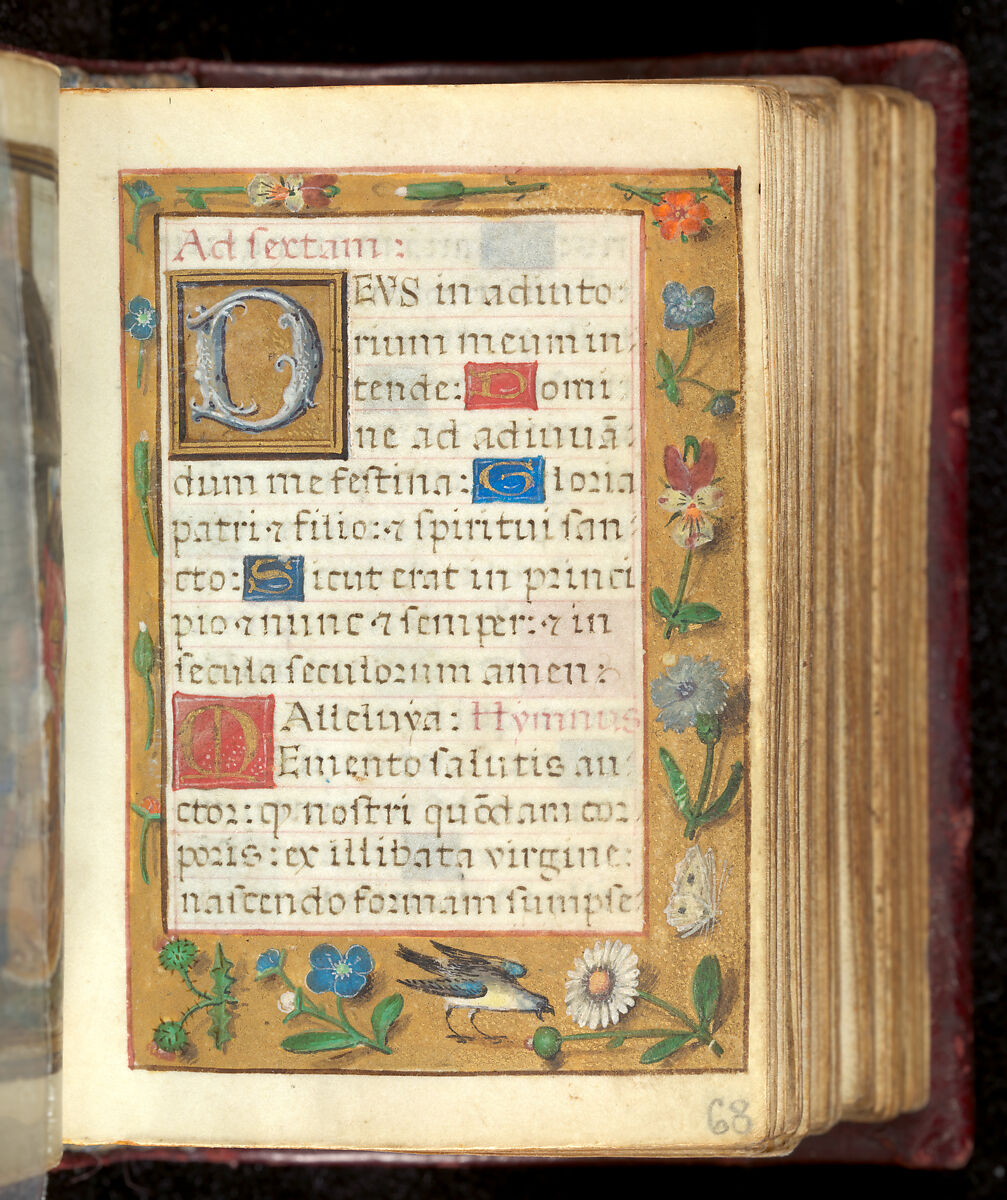 Ad sextam:
DEVS in adiuto
rium meum in
tende: Domi
ne ad adiuuā
dum me festina: Gloria
patri ⁊ filio: ⁊ spiritui san
cto: Sicut erat in princi
pio ⁊ nunc ⁊ semper: ⁊ in
secula seculorum amen:
Alleluya: Hymnus
Memento salutis au
ctor: ꝙ nostri quōdam cor
poris: ex illibata virgine:
nascendo formam sumpse
68